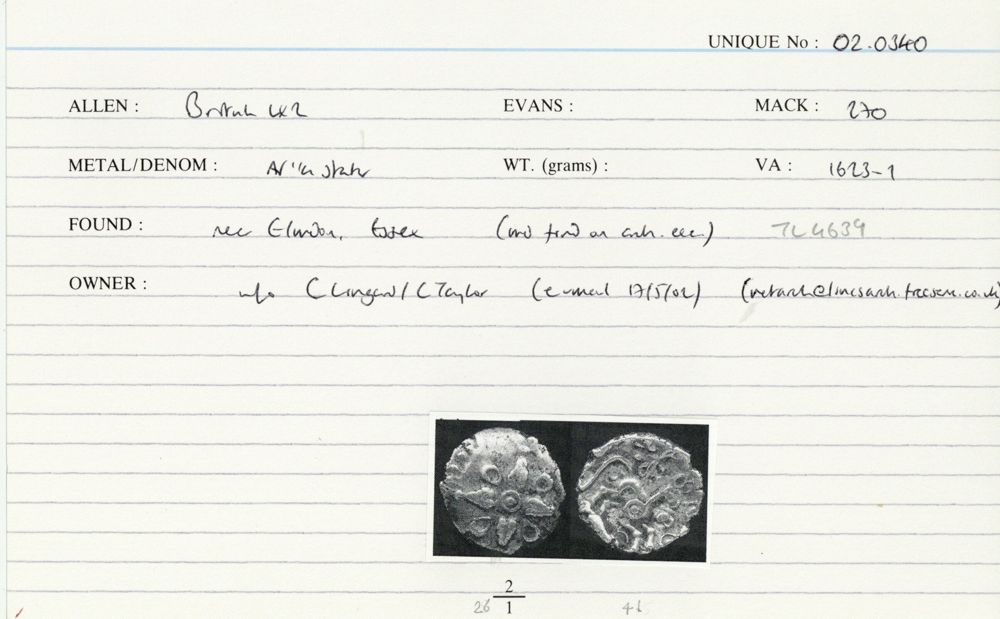 UNIQUE No : 02.0340
ALLEN : British LX2 EVANS : MACK : 270
METAL/DENOM : AV 1/4 stater WT. (grams) : VA : 1623-1
FOUND : nr Elmdon, Essex (md find on arch. exc.) TL4639
OWNER : info C Lingard / C Taylor (e-mail 17/5/02)
2
26 1